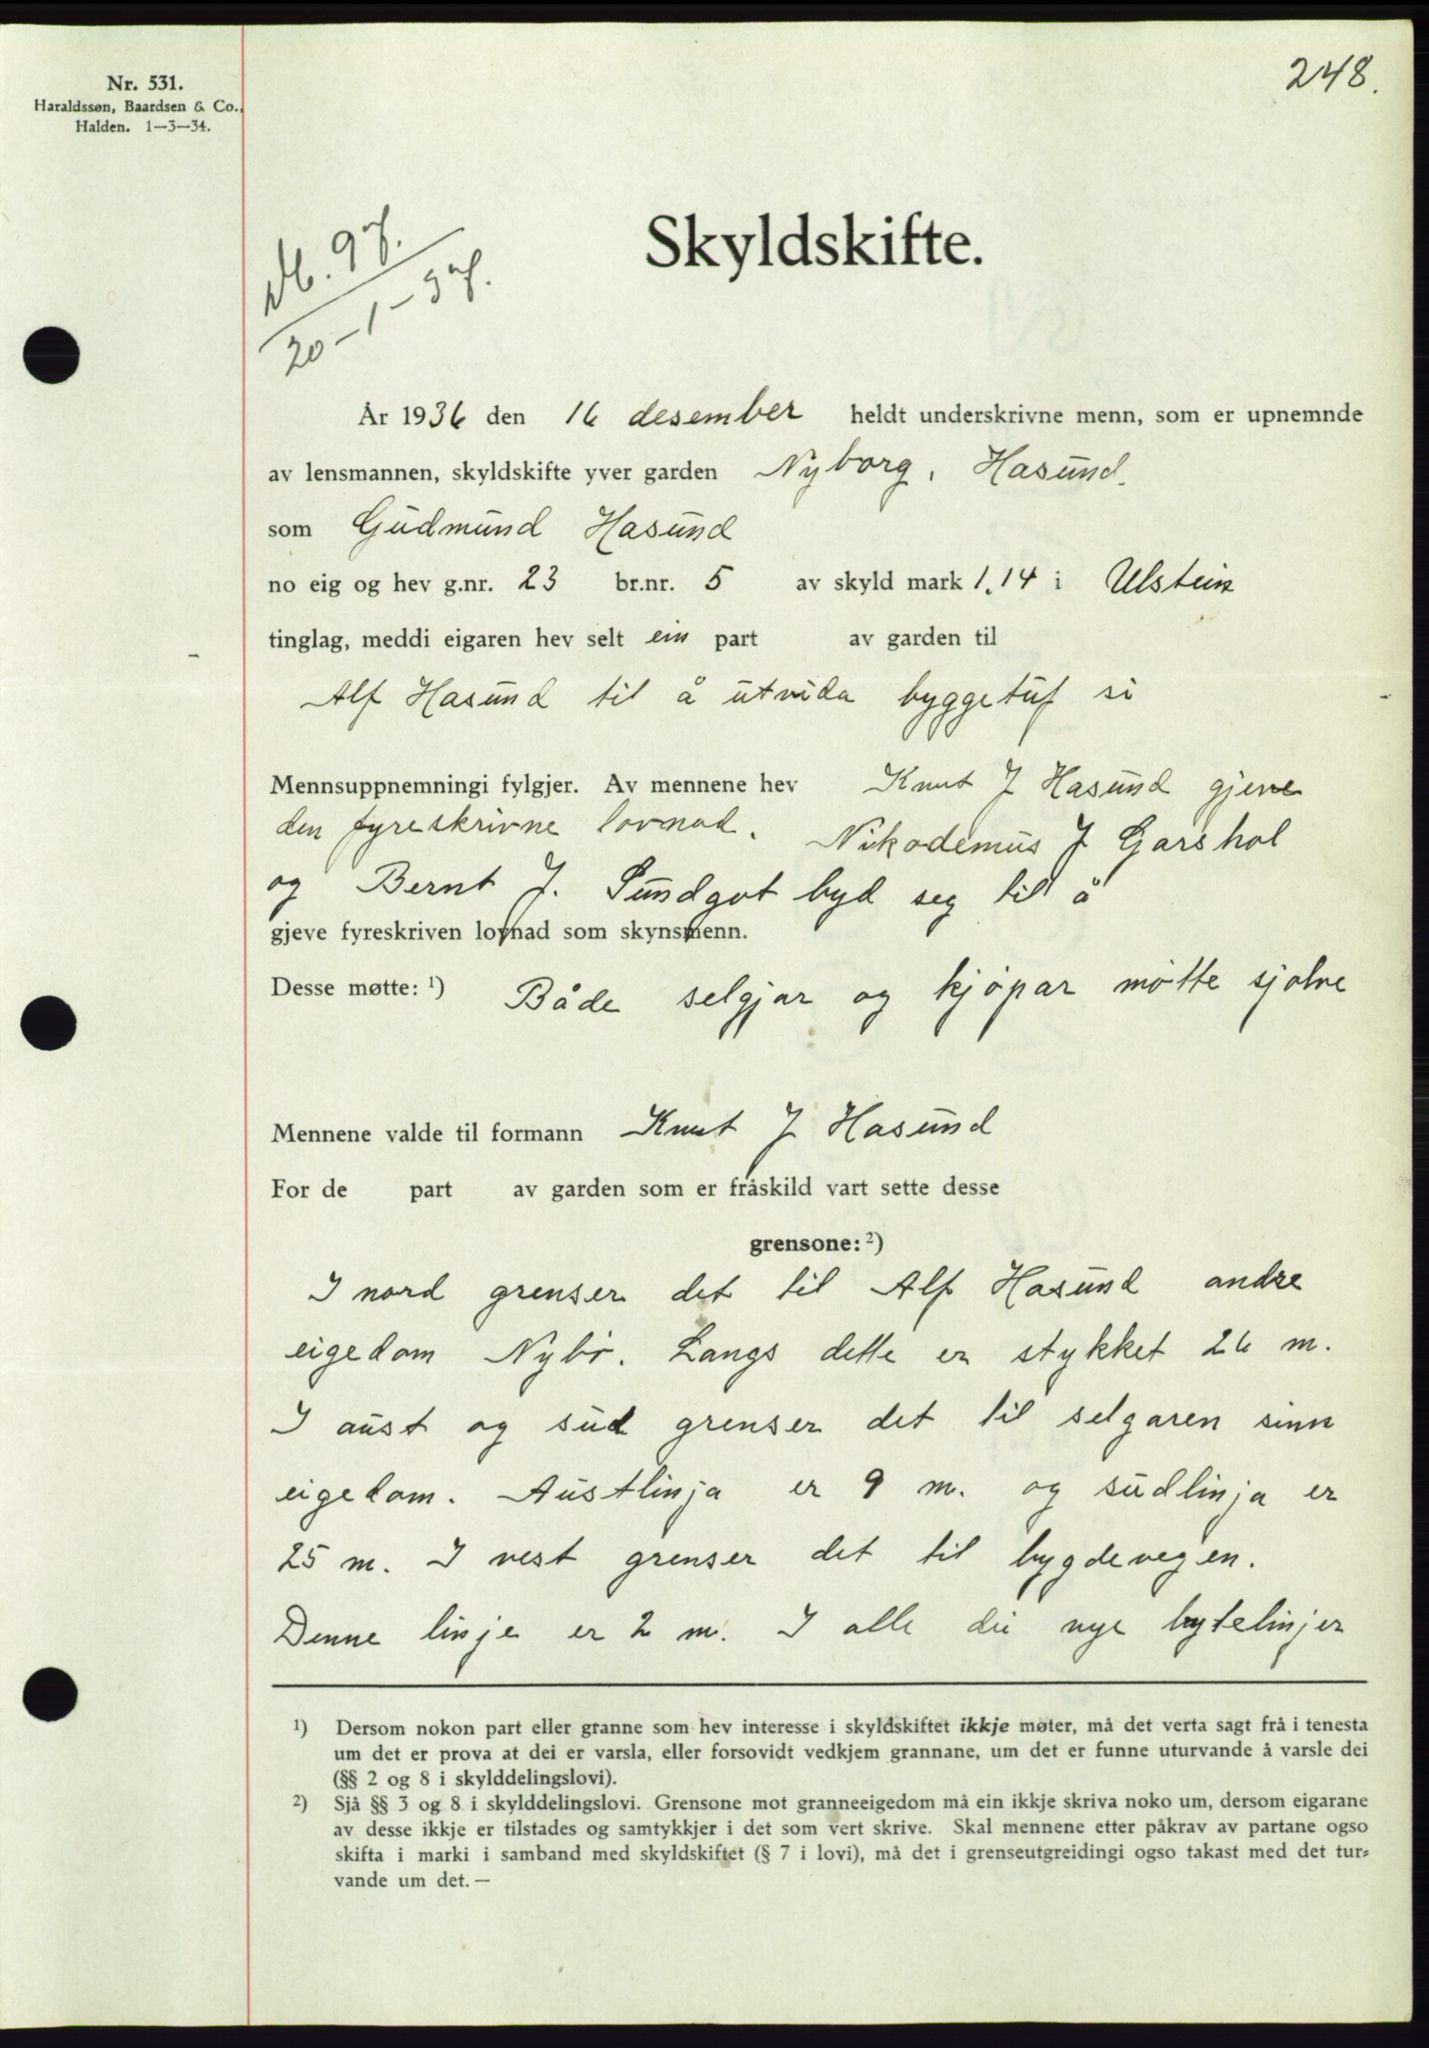 248.
Nr. 531.
Haraldssøn, Baardsen & Co.,
Halden. 1—3—34.
Db. 97.
20-1-37.
Skyldskifte.
År 1936 den 16 desember heldt underskrivne menn, som er upnemnde
av lensmannen, skyldskifte yver garden Nyborg, Hasund.
som Gudmund Hasund
no eig og hev g.nr. 23 br.nr. 5 av skyld mark 1.14 i Ulstein
tinglag, meddi eigaren hev selt ein part av garden til
Alf Hasund til å utvida byggetuf si
Mennsuppnemningi fylgjer. Av mennene hev Knut J Hasund gjeve
den fyreskrivne lovnad. Nikodemus J Garshol
og Bernt J. Sundgot byd seg til å
gjeve fyreskriven lovnad som skynsmenn.
Desse møtte: ¹) Både selgjar og kjøpar møtte sjølve
Mennene valde til formann Knut J Hasund
For de part av garden som er fråskild vart sette desse
grensone: ²)
I nord grenser det til Alf Hasund andre
eigedom Nybø. Langs dette er stykket 26 m.
I aust og sud grenser det til selgaren sinn
eigedom. Austlinja er 9 m. og sudlinja er
25 m. I vest grenser det til bygdevegen.
Denne linje er 2 m. I alle dei nye bytelinjer
¹) Dersom nokon part eller granne som hev interesse i skyldskiftet ikkje møter, må det verta sagt frå i tenesta
um det er prova at dei er varsla, eller forsovidt vedkjem grannane, um det er funne uturvande å varsle dei
(§§ 2 og 8 i skylddelingslovi).
²) Sjå §§ 3 og 8 i skylddelingslovi. Grensone mot granneeigedom må ein ikkje skriva noko um, dersom eigarane
av desse ikkje er tilstades og samtykkjer i det som vert skrive. Skal mennene etter påkrav av partane ogso
skifta i marki i samband med skyldskiftet (§ 7 i lovi), må det i grenseutgreidingi ogso takast med det tur-
vande um det. —